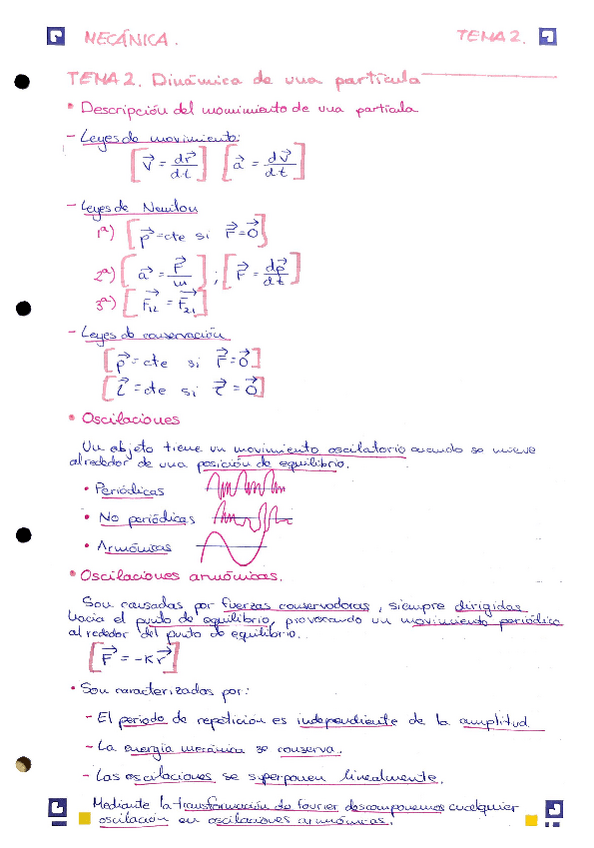 MECÁNICA.
TEMA 2.
TEMA 2. Dinámica de una partícula
• Descripción del movimiento de una partícula
- Leyes de movimiento:
[v⃗ = dr⃗/dt] [a⃗ = dv⃗/dt]
- Leyes de Newton
1ª) [p⃗ = cte si F⃗ = 0⃗]
2ª) [a⃗ = F⃗/m] ; [F⃗ = dp⃗/dt]
3ª) [F₁₂⃗ = F₂₁⃗]
- Leyes de conservación
[p⃗ = cte si F⃗ = 0⃗]
[L⃗ = cte si τ⃗ = 0⃗]
• Oscilaciones
Un objeto tiene un movimiento oscilatorio cuando se mueve
alrededor de una posición de equilibrio.
• Periódicas
• No periódicas
• Armónicas
• Oscilaciones armónicas.
Son causadas por fuerzas conservadoras, siempre dirigidas
hacia el punto de equilibrio, provocando un movimiento periódico
alrededor del punto de equilibrio.
[F⃗ = -Kr⃗]
• Son caracterizadas por:
- El periodo de repetición es independiente de la amplitud.
- La energía mecánica se conserva.
- Las oscilaciones se superponen linealmente.
Mediante la transformación de fourier descomponemos cualquier
oscilación en oscilaciones armónicas.